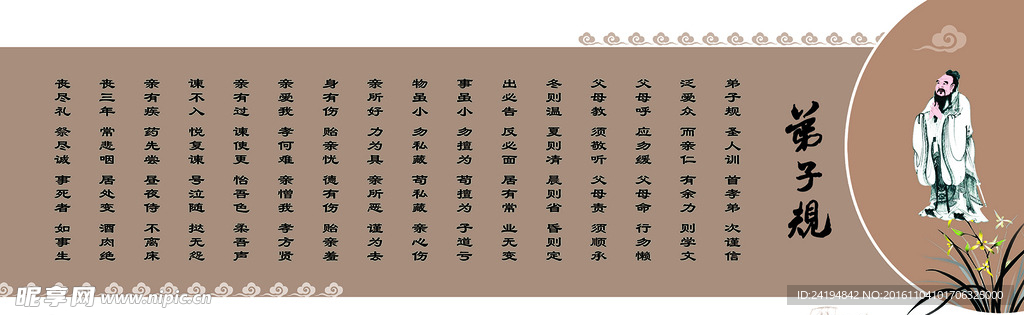 弟子规
弟子规 圣人训 首孝弟 次谨信
泛爱众 而亲仁 有余力 则学文
父母呼 应勿缓 父母命 行勿懒
父母教 须敬听 父母责 须顺承
冬则温 夏则凊 晨则省 昏则定
出必告 反必面 居有常 业无变
事虽小 勿擅为 苟擅为 子道亏
物虽小 勿私藏 苟私藏 亲心伤
亲所好 力为具 亲所恶 谨为去
身有伤 贻亲忧 德有伤 贻亲羞
亲爱我 孝何难 亲憎我 孝方贤
亲有过 谏使更 怡吾色 柔吾声
谏不入 悦复谏 号泣随 挞无怨
亲有疾 药先尝 昼夜侍 不离床
丧三年 常悲咽 居处变 酒肉绝
丧尽礼 祭尽诚 事死者 如事生
昵享网 www.nipic.cn
ID:24194842 NO:20161104101706325000